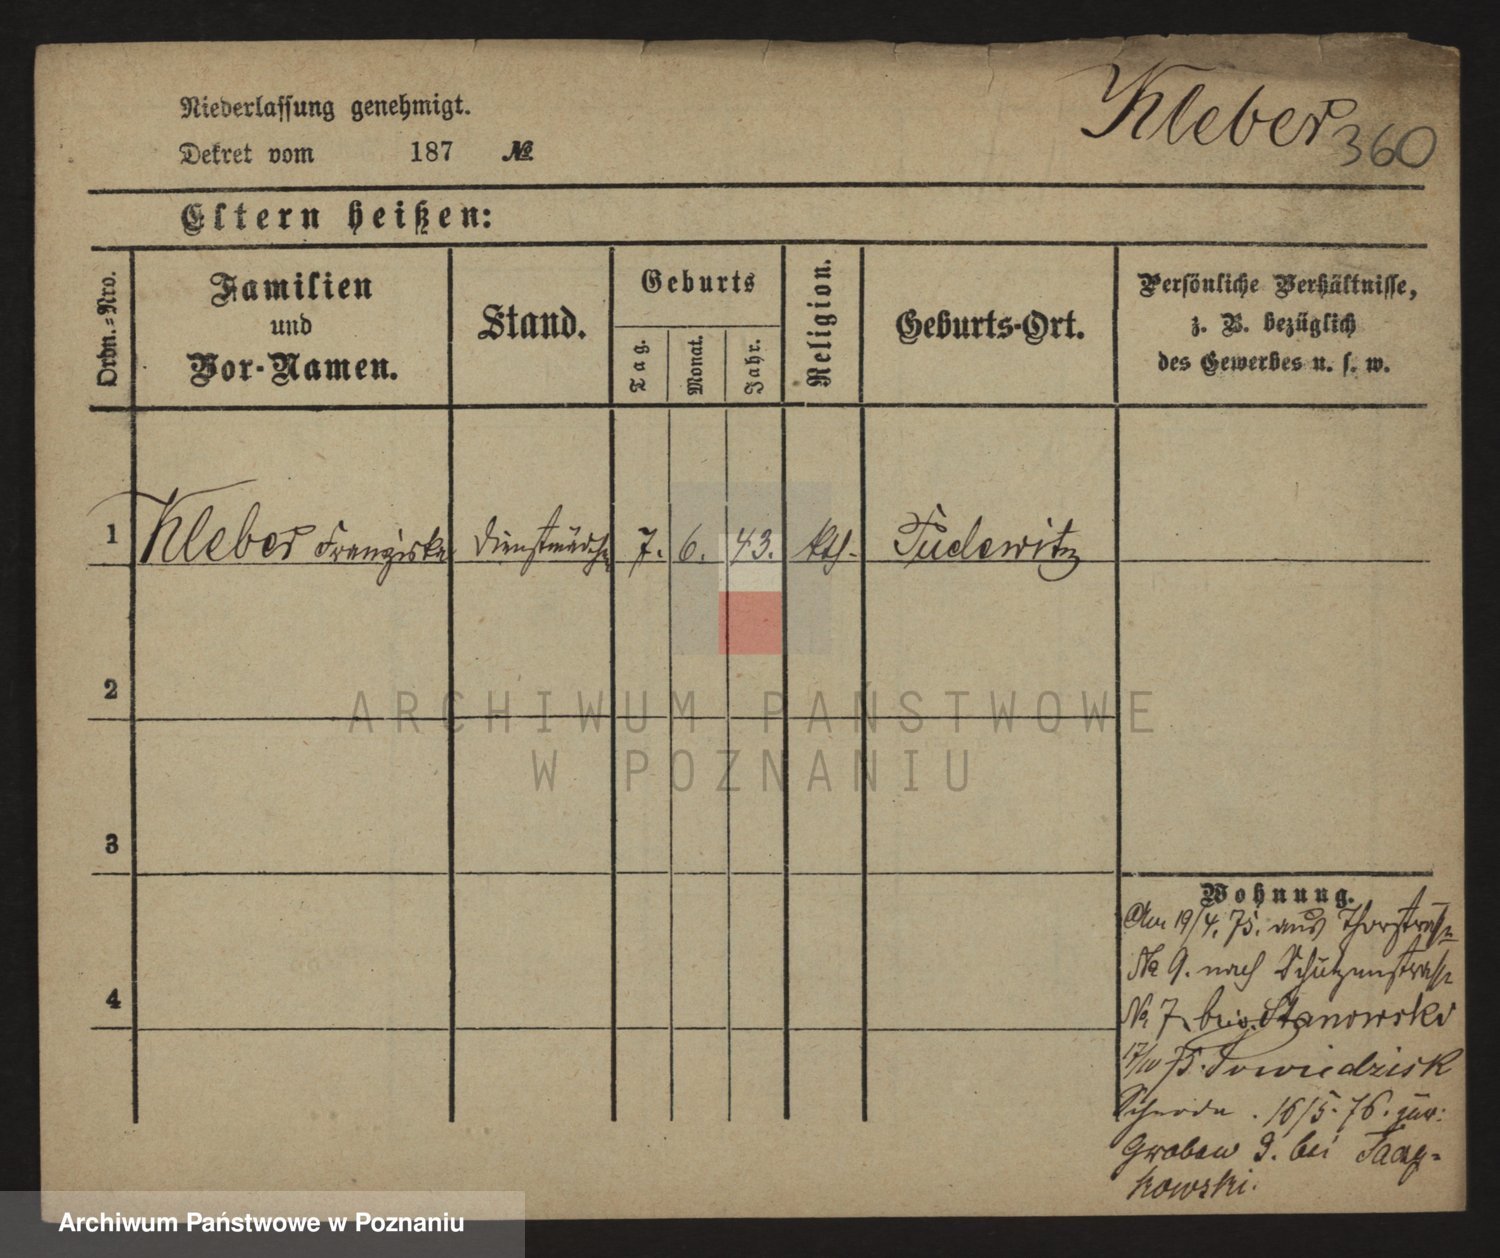 Niederlassung genehmigt.
Kleber
360
Dekret vom 187 №
Eltern heißen:
Ordn.-Nro.
Familien
und
Vor-Namen.
Stand.
Geburts
Tag.
Monat.
Jahr.
Religion.
Geburts-Ort.
Persönliche Verhältnisse,
z. B. bezüglich
des Gewerbes u. s. w.
1 Kleber Franziska Dienstmädchen 7. 6. 43. kth. Tudewitz
2
3
4
Wohnung.
Am 19/4. 75. aus Thorstraße
No 9. nach Schützenstraße
No 7 bei Stanowski
17/10 75.
16/5. 76. zur.
Graben 9. bei
kowski.
ARCHIWUM PAŃSTWOWE
W POZNANIU
Archiwum Państwowe w Poznaniu